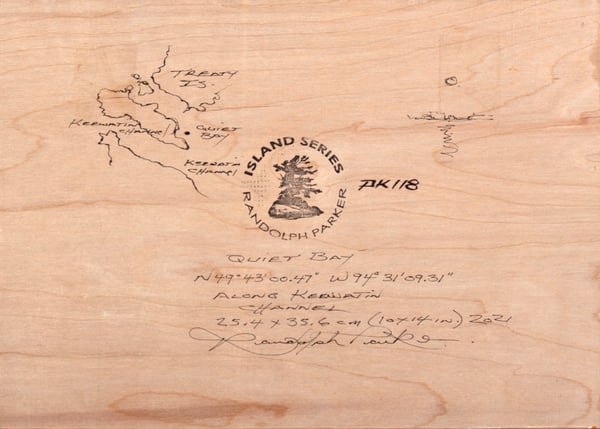 TREATY
IS.
KEEWATIN
CHANNEL
QUIET
BAY
KEEWATIN
CHANNEL
ISLAND SERIES
RANDOLPH PARKER
QUIET BAY
N 49° 43' 00.47" W 94° 31' 09.31"
ALONG KEEWATIN
CHANNEL
25.4 x 35.6 cm (10x14 IN.) 2021
Randolph Parker